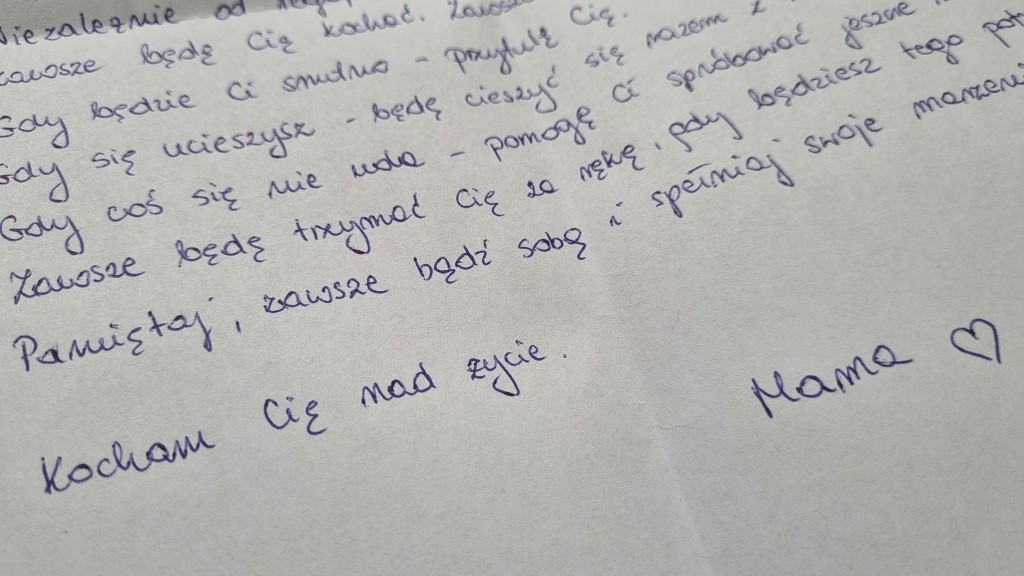 Niezależnie od
zawsze będę Cię kochać. Zawsze
Gdy będzie Ci smutno - przytulę Cię.
Gdy się ucieszysz - będę cieszyć się razem z
Gdy coś się nie uda - pomogę Ci spróbować jeszcze
Zawsze będę trzymać Cię za rękę, gdy będziesz tego
Pamiętaj, zawsze bądź sobą i spełniaj swoje
Kocham Cię nad życie.
Mama ♡